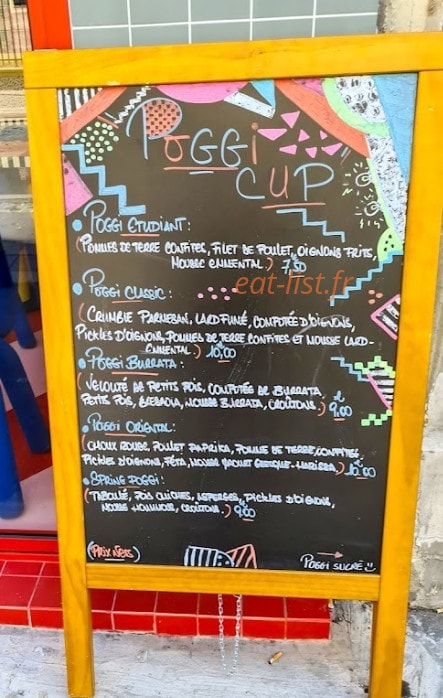 POGGI
CUP
• POGGI ETUDIANT :
(POMMES DE TERRE CONFITES, FILET DE POULET, OIGNONS FRITS,
MOUSSE EMMENTAL.) 7,50
eat-list.fr
• POGGI CLASSIC :
(CRUMBLE PARMESAN, LARD FUMÉ, COMPOTÉE D'OIGNONS,
PICKLES D'OIGNONS, POMMES DE TERRE CONFITES ET MOUSSE LARD-
EMMENTAL.) 10,00
• POGGI BURRATA :
(VELOUTÉ DE PETITS POIS, COMPOTÉE DE BURRATA,
PETITS POIS, MOUSSE BURRATA, CROÛTONS.) 9,00
• POGGI ORIENTAL :
(CHOUX ROUGE, POULET PAPRIKA, POMME DE TERRE CONFITES,
PICKLES D'OIGNONS, FÉTA, MOUSSE YAOURT GRECQUE-HARISSA.)
• SPRING POGGI :
(TABOULÉ, POIS CHICHES, ASPERGES, PICKLES D'OIGNONS,
MOUSSE HOUMMOUS, CROÛTONS.) 9,00
(PRIX NETS)
POGGI SUCRÉ